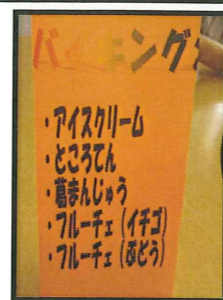 バイキング
・アイスクリーム
・ところてん
・葛まんじゅう
・フルーチェ（イチゴ）
・フルーチェ（ぶどう）